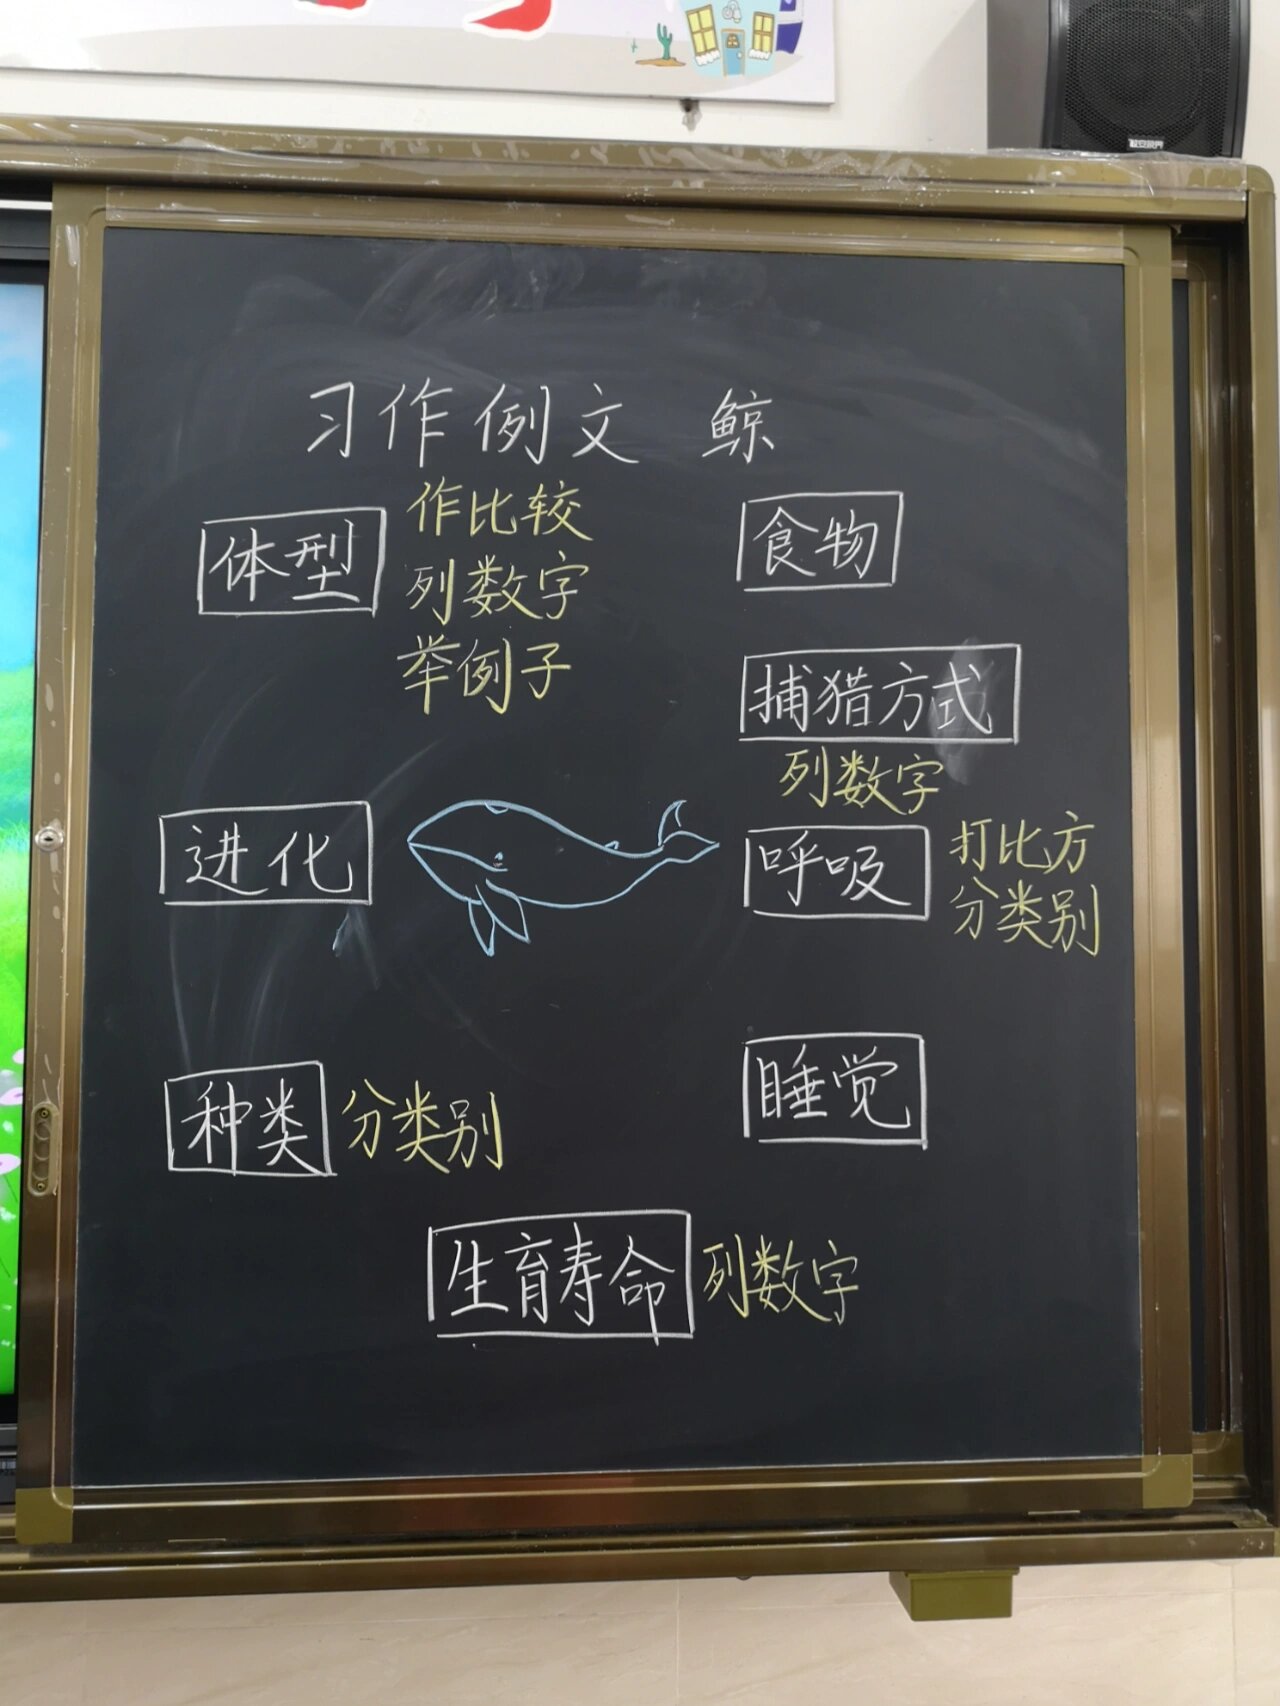 习作例文 鲸
体型
作比较
列数字
举例子
食物
捕猎方式
列数字
进化
呼吸
打比方
分类别
种类 分类别
睡觉
生育寿命 列数字